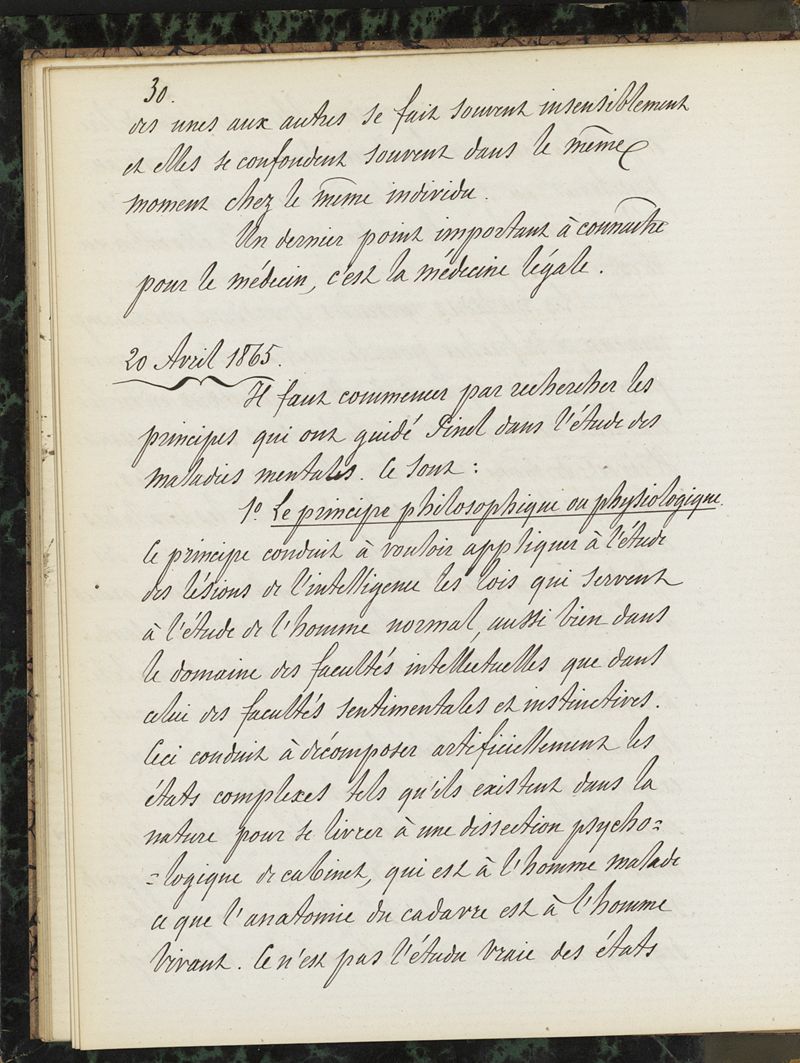 30.
des unes aux autres se fait souvent insensiblement
et elles se confondent souvent dans le même
moment chez le même individu.
Un dernier point important à connaître
pour le médecin, c'est la médecine légale.
20 Avril 1865.
Il faut commencer par rechercher les
principes qui ont guidé Pinel dans l'étude des
maladies mentales. Ce sont :
1° Le principe philosophique ou physiologique.
Ce principe conduit à vouloir appliquer à l'étude
des lésions de l'intelligence les lois qui servent
à l'étude de l'homme normal, aussi bien dans
le domaine des facultés intellectuelles que dans
celui des facultés sentimentales et instinctives.
Ceci conduit à décomposer artificiellement les
états complexes tels qu'ils existent dans la
nature pour se livrer à une dissection psycho=
=logique de cabinet, qui est à l'homme malade
ce que l'anatomie du cadavre est à l'homme
vivant. Ce n'est pas l'étude vraie des états